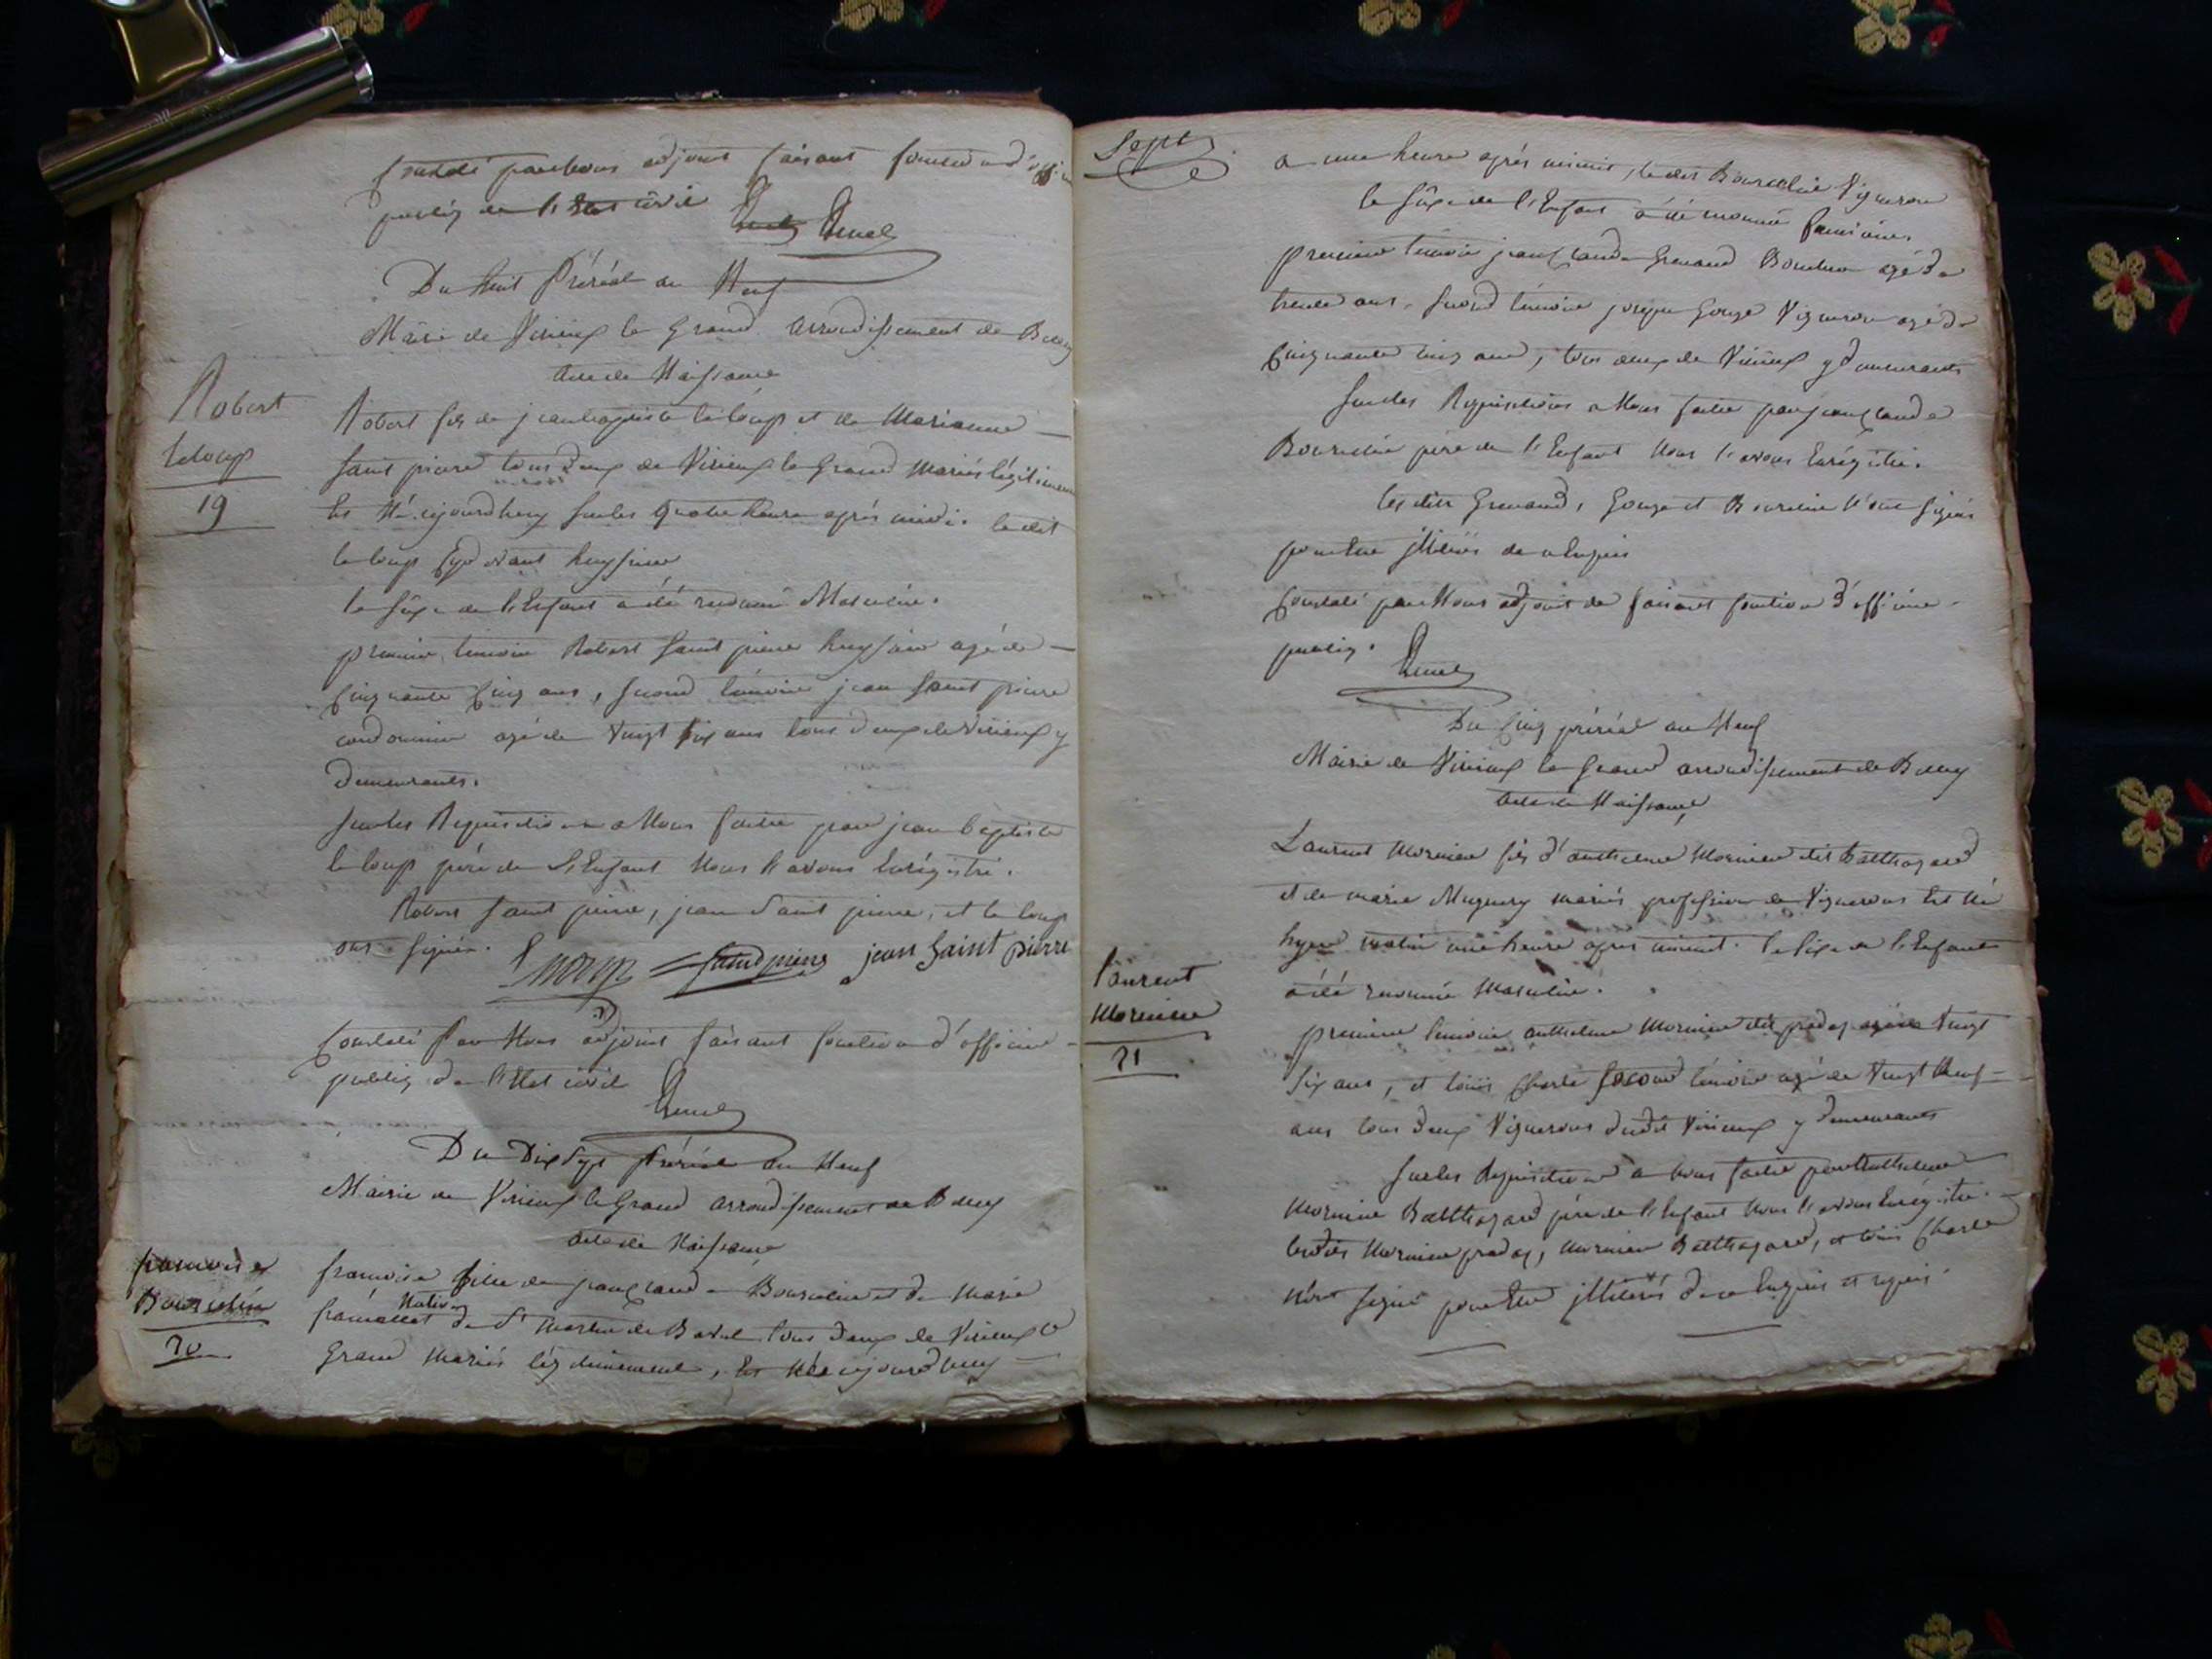 Constaté par Nous adjoint faisant fonction d'offi
public de l'Etat civil
Du huit Prérial an Neuf
Mairie de Virieux le Grand arrondissement de Belley
Acte de Naissance
Robert
leloup
19
Robert fils de jean baptiste le loup et de Marianne
Saint pierre tous deux de Virieux le Grand Mariés légitimem
Est Né aujourdhuy sur les quatre heure après midi. le dit
le loup cydevant huissier
le sexe de l'Enfant a été reconnu Masculin.
premier temoin Robert Saint pierre huissier agé de
Cinquante Cinq ans, second témoin jean Saint pierre
cordonnier agé de Vingt six ans tous deux de Virieux y
Demeurants.
Sur les Requisition a Nous faitte par jean baptiste
le loup père de l'Enfant Nous l'avons Enrégistré.
Robert Saint pierre, jean Saint pierre, et le loup
ont signés.
Leloup Saint pierre jean Saint pierre
Constaté Par Nous adjoint faisant fonction d'officier
public de l'Etat civil
Du Dix Sept Prérial an Neuf
Mairie de Virieux le Grand arrondissement de Belley
acte de Naissance
francoise
Bourcelin
20
francoise fille de jean Claude Bourcelin et de Marie
Native
de St Martin de Bavel tous deux de Virieux le
Grand Mariés légitimement, Est Née aujourdhuy
Sept
a une heure après minuit, le dit Bourcelin Vigneron
le sexe de l'Enfant a été reconnu feminin.
premier temoin jean Claude Grenand agé de
trente ans, second témoin joseph Gonze Vigneron agé de
Cinquante cinq ans, tous deux de Virieux y demeurants
Sur les Requisitions a Nous faitte par jean Claude
Bourcelin père de l'Enfant Nous l'avons Enrégistré.
les dits Grenand, Gonze et Bourcelin N'ont signés
pour Etre illiterés de ce Enquis
Constaté par Nous adjoint de faisant fonction d'officier
public.
Du Cinq prérial an Neuf
Mairie de Virieux le Grand arrondissement de Belley
acte de Naissance
laurent
Mornieu
21
Laurent Mornieu fils d'anthelme Mornieu dit Balthazard
et de marie Muguery mariés profession de Vignerons Est Né
hyer matin une heure apres minuit. le sexe de l'Enfant
a été reconnu Masculin.
premier temoin anthelme Mornieu dit pradaz agé de Vingt
Six ans, et loüis Charle second témoin agé de Vingt Neuf
ans tous deux Vignerons dudit Virieux y demeurants
Sur les Requisition a nous faitte par anthelme
Mornieu Balthazard père de l'Enfant Nous l'avons Enrégistré.
lesdits Mornieu pradaz, Mornieu Balthazard, et loüis Charle
N'ont signé pour Etre illiterés de ce Enquis et requis.